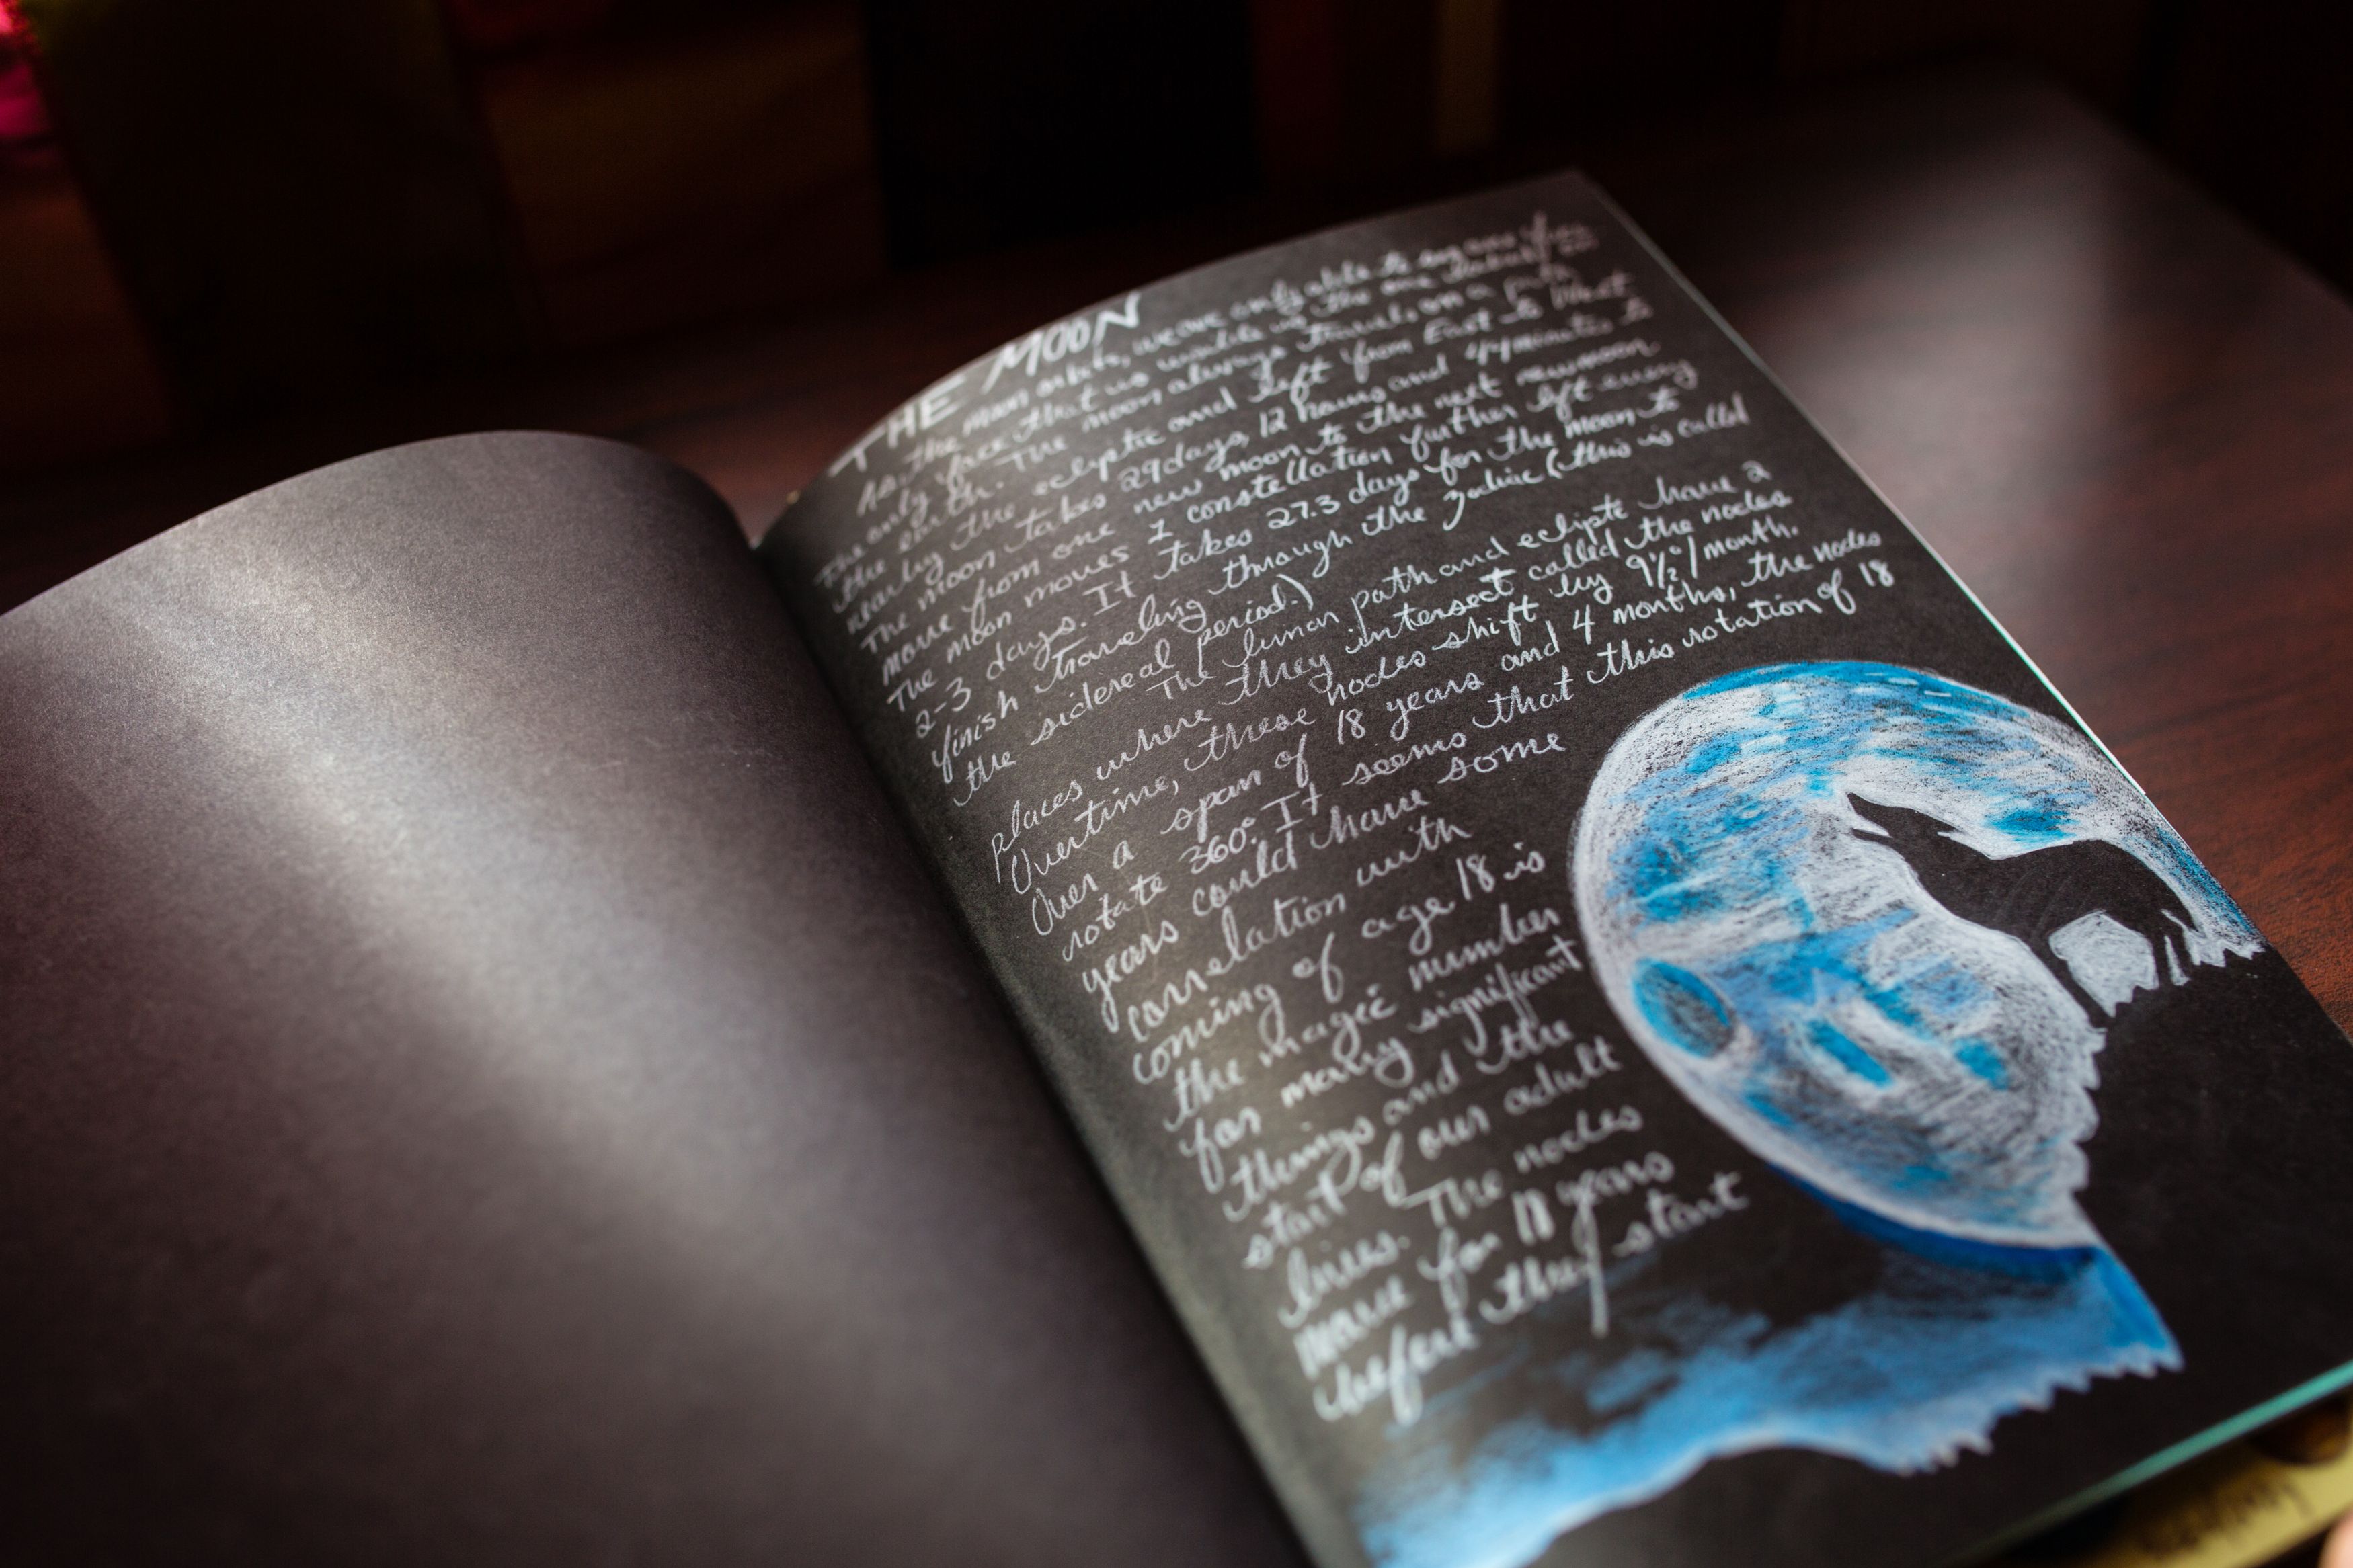 THE MOON
As the moon orbits, we are only able to see one face
the only face that is visible is the one
the earth. The moon always travels on a path
nearby the ecliptic and left from East to West
The moon takes 29 days, 12 hours and 44 minutes to
move from one new moon to the next new moon.
The moon moves 1 constellation further left every
2-3 days. It takes 27.3 days for the moon to
finish traveling through the zodiac (this is called
the sidereal period.)
The lunar path and eclipte have 2
places where they intersect called the nodes
Overtime, these nodes shift by 9½°/month.
Over a span of 18 years and 4 months, the nodes
rotate 360°. It seems that this rotation of 18
years could have some
correlation with
coming of age 18 is
the magic number
for many significant
things and the
start of our adult
lives. The nodes
move for 18 years
before they start